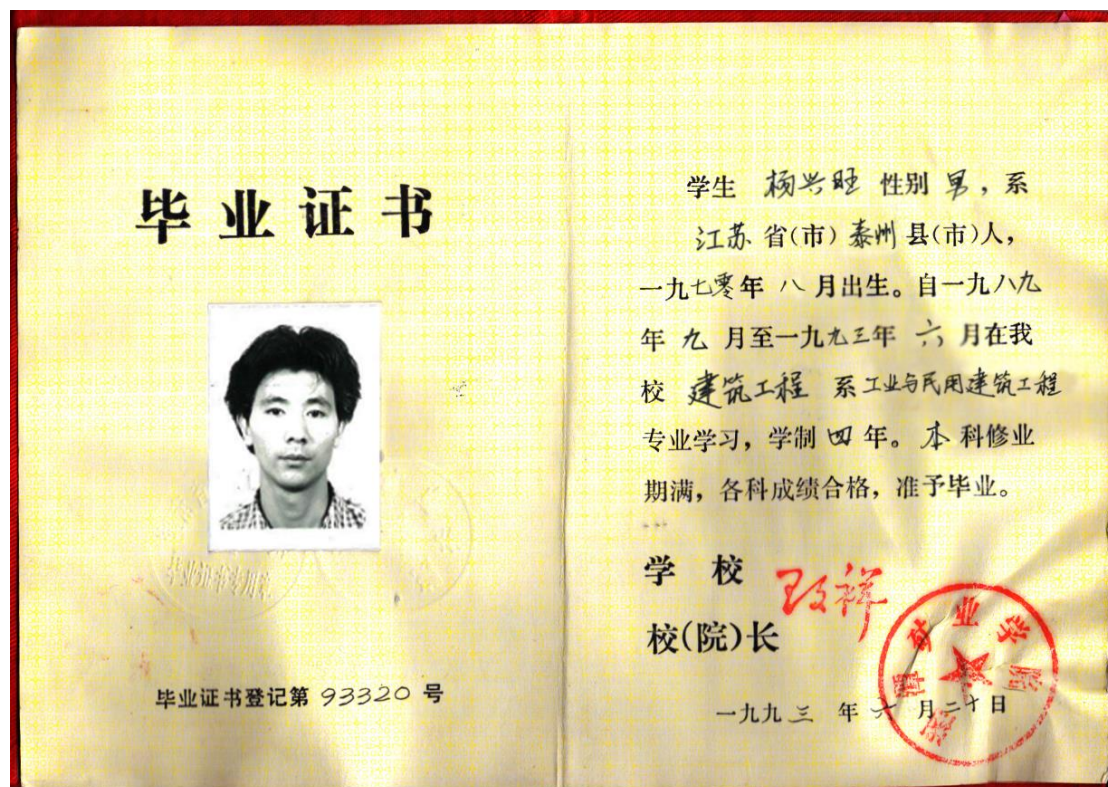 毕业证书
毕业证书专用章
毕业证书登记第 93320 号
学生 杨兴旺 性别 男,系
江苏 省(市) 泰州 县(市)人,
一九七零年 八 月出生。自一九八九
年 九 月至一九九三年 六 月在我
校 建筑工程 系工业与民用建筑工程
专业学习,学制 四 年。本 科修业
期满,各科成绩合格,准予毕业。
学 校
校(院)长
一九九三 年 六 月二十日